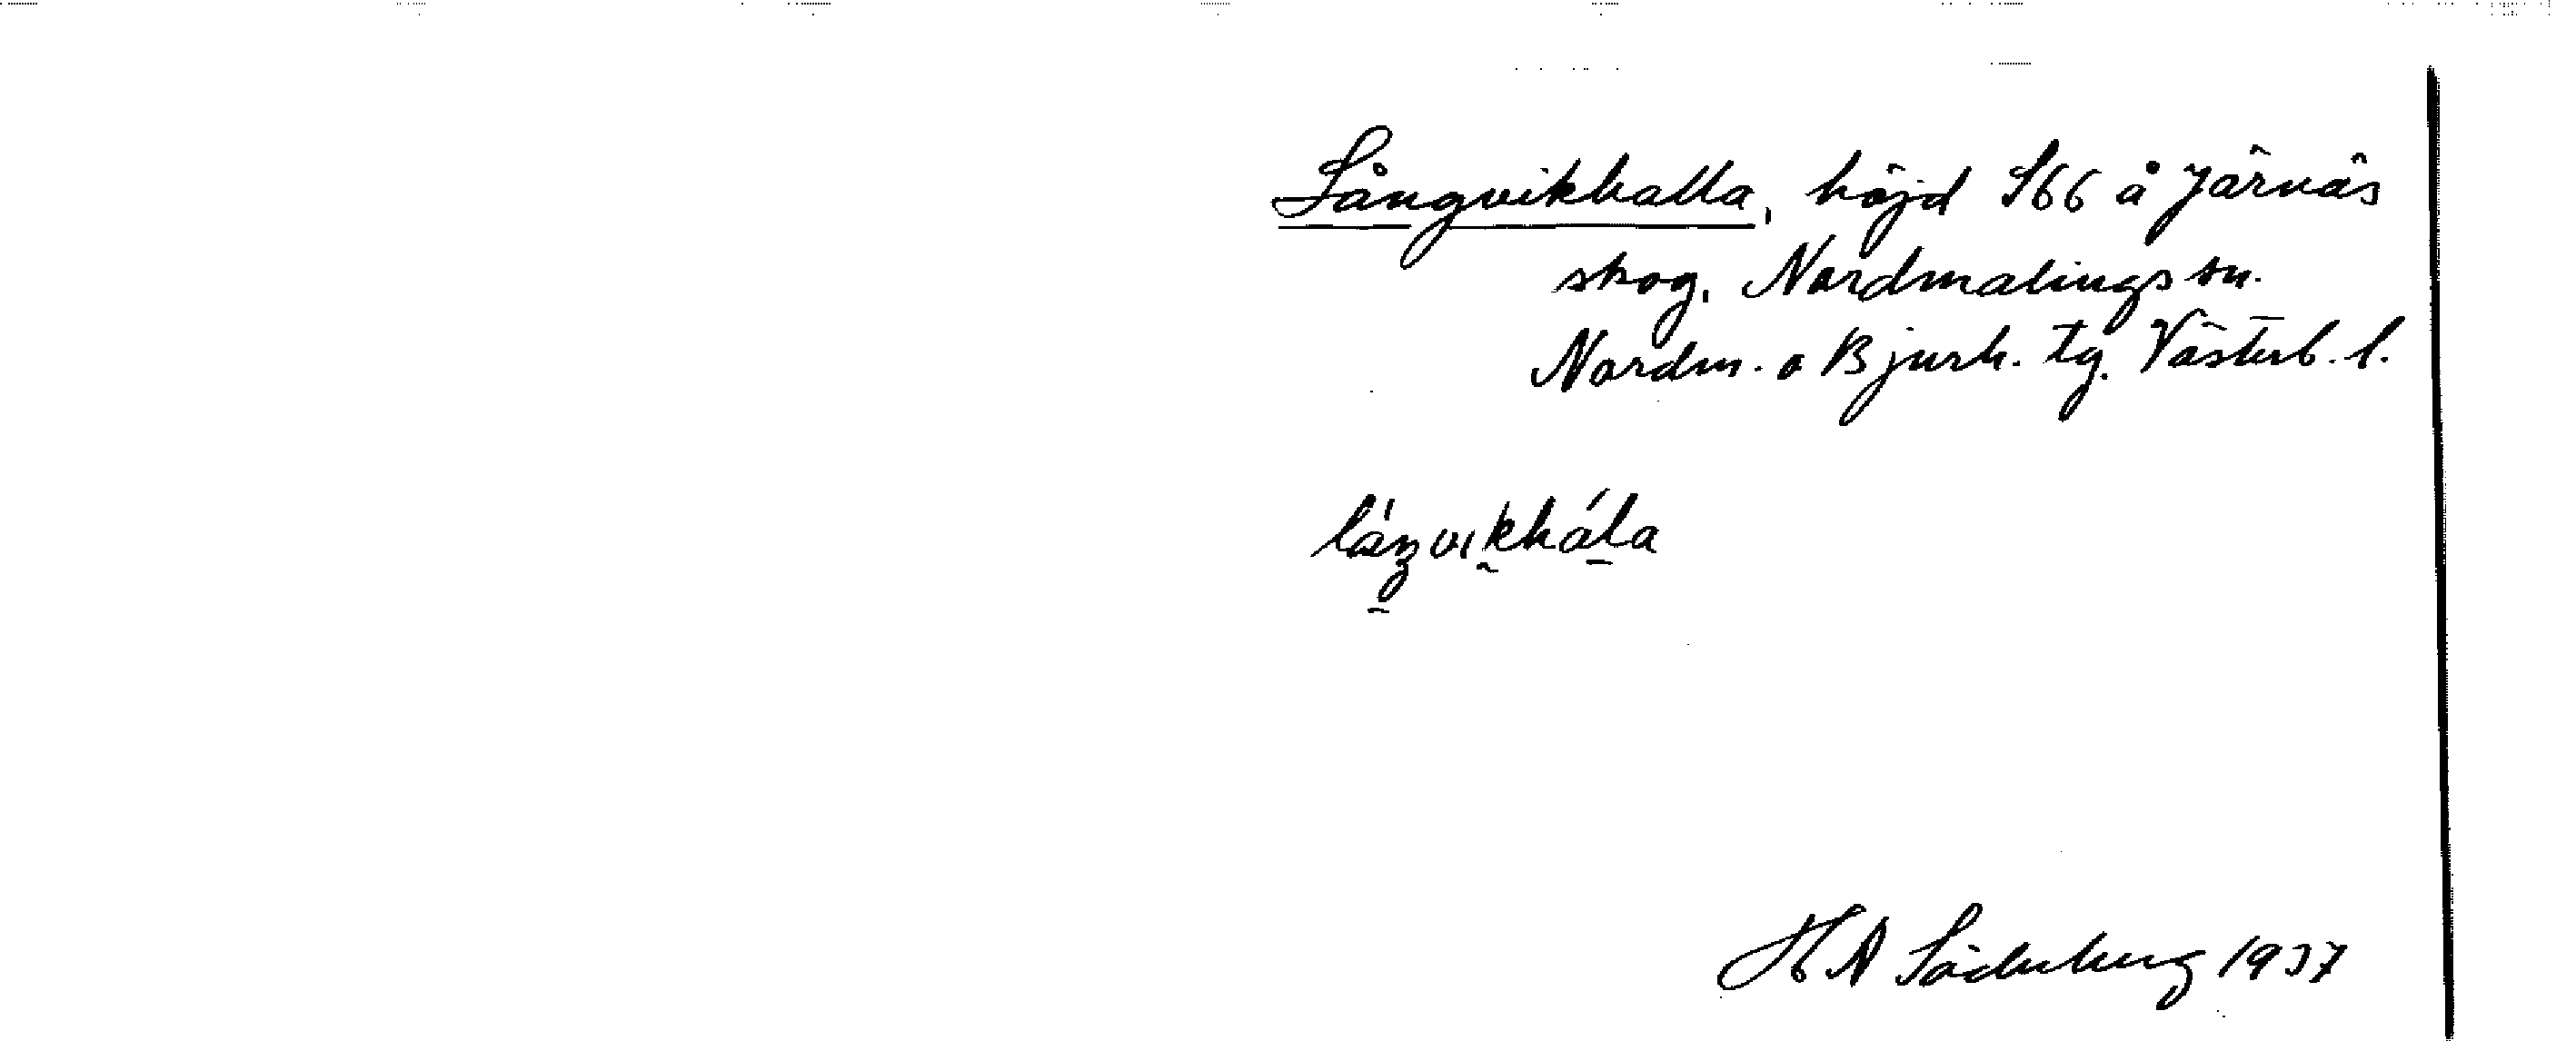 Långvikhalla, höjd S66 å Järnäs
skog, Nordmalings sn.
Nordm. o Bjurh. tg. Västerb. l.
låŋvikhála
H A Söderberg 1937